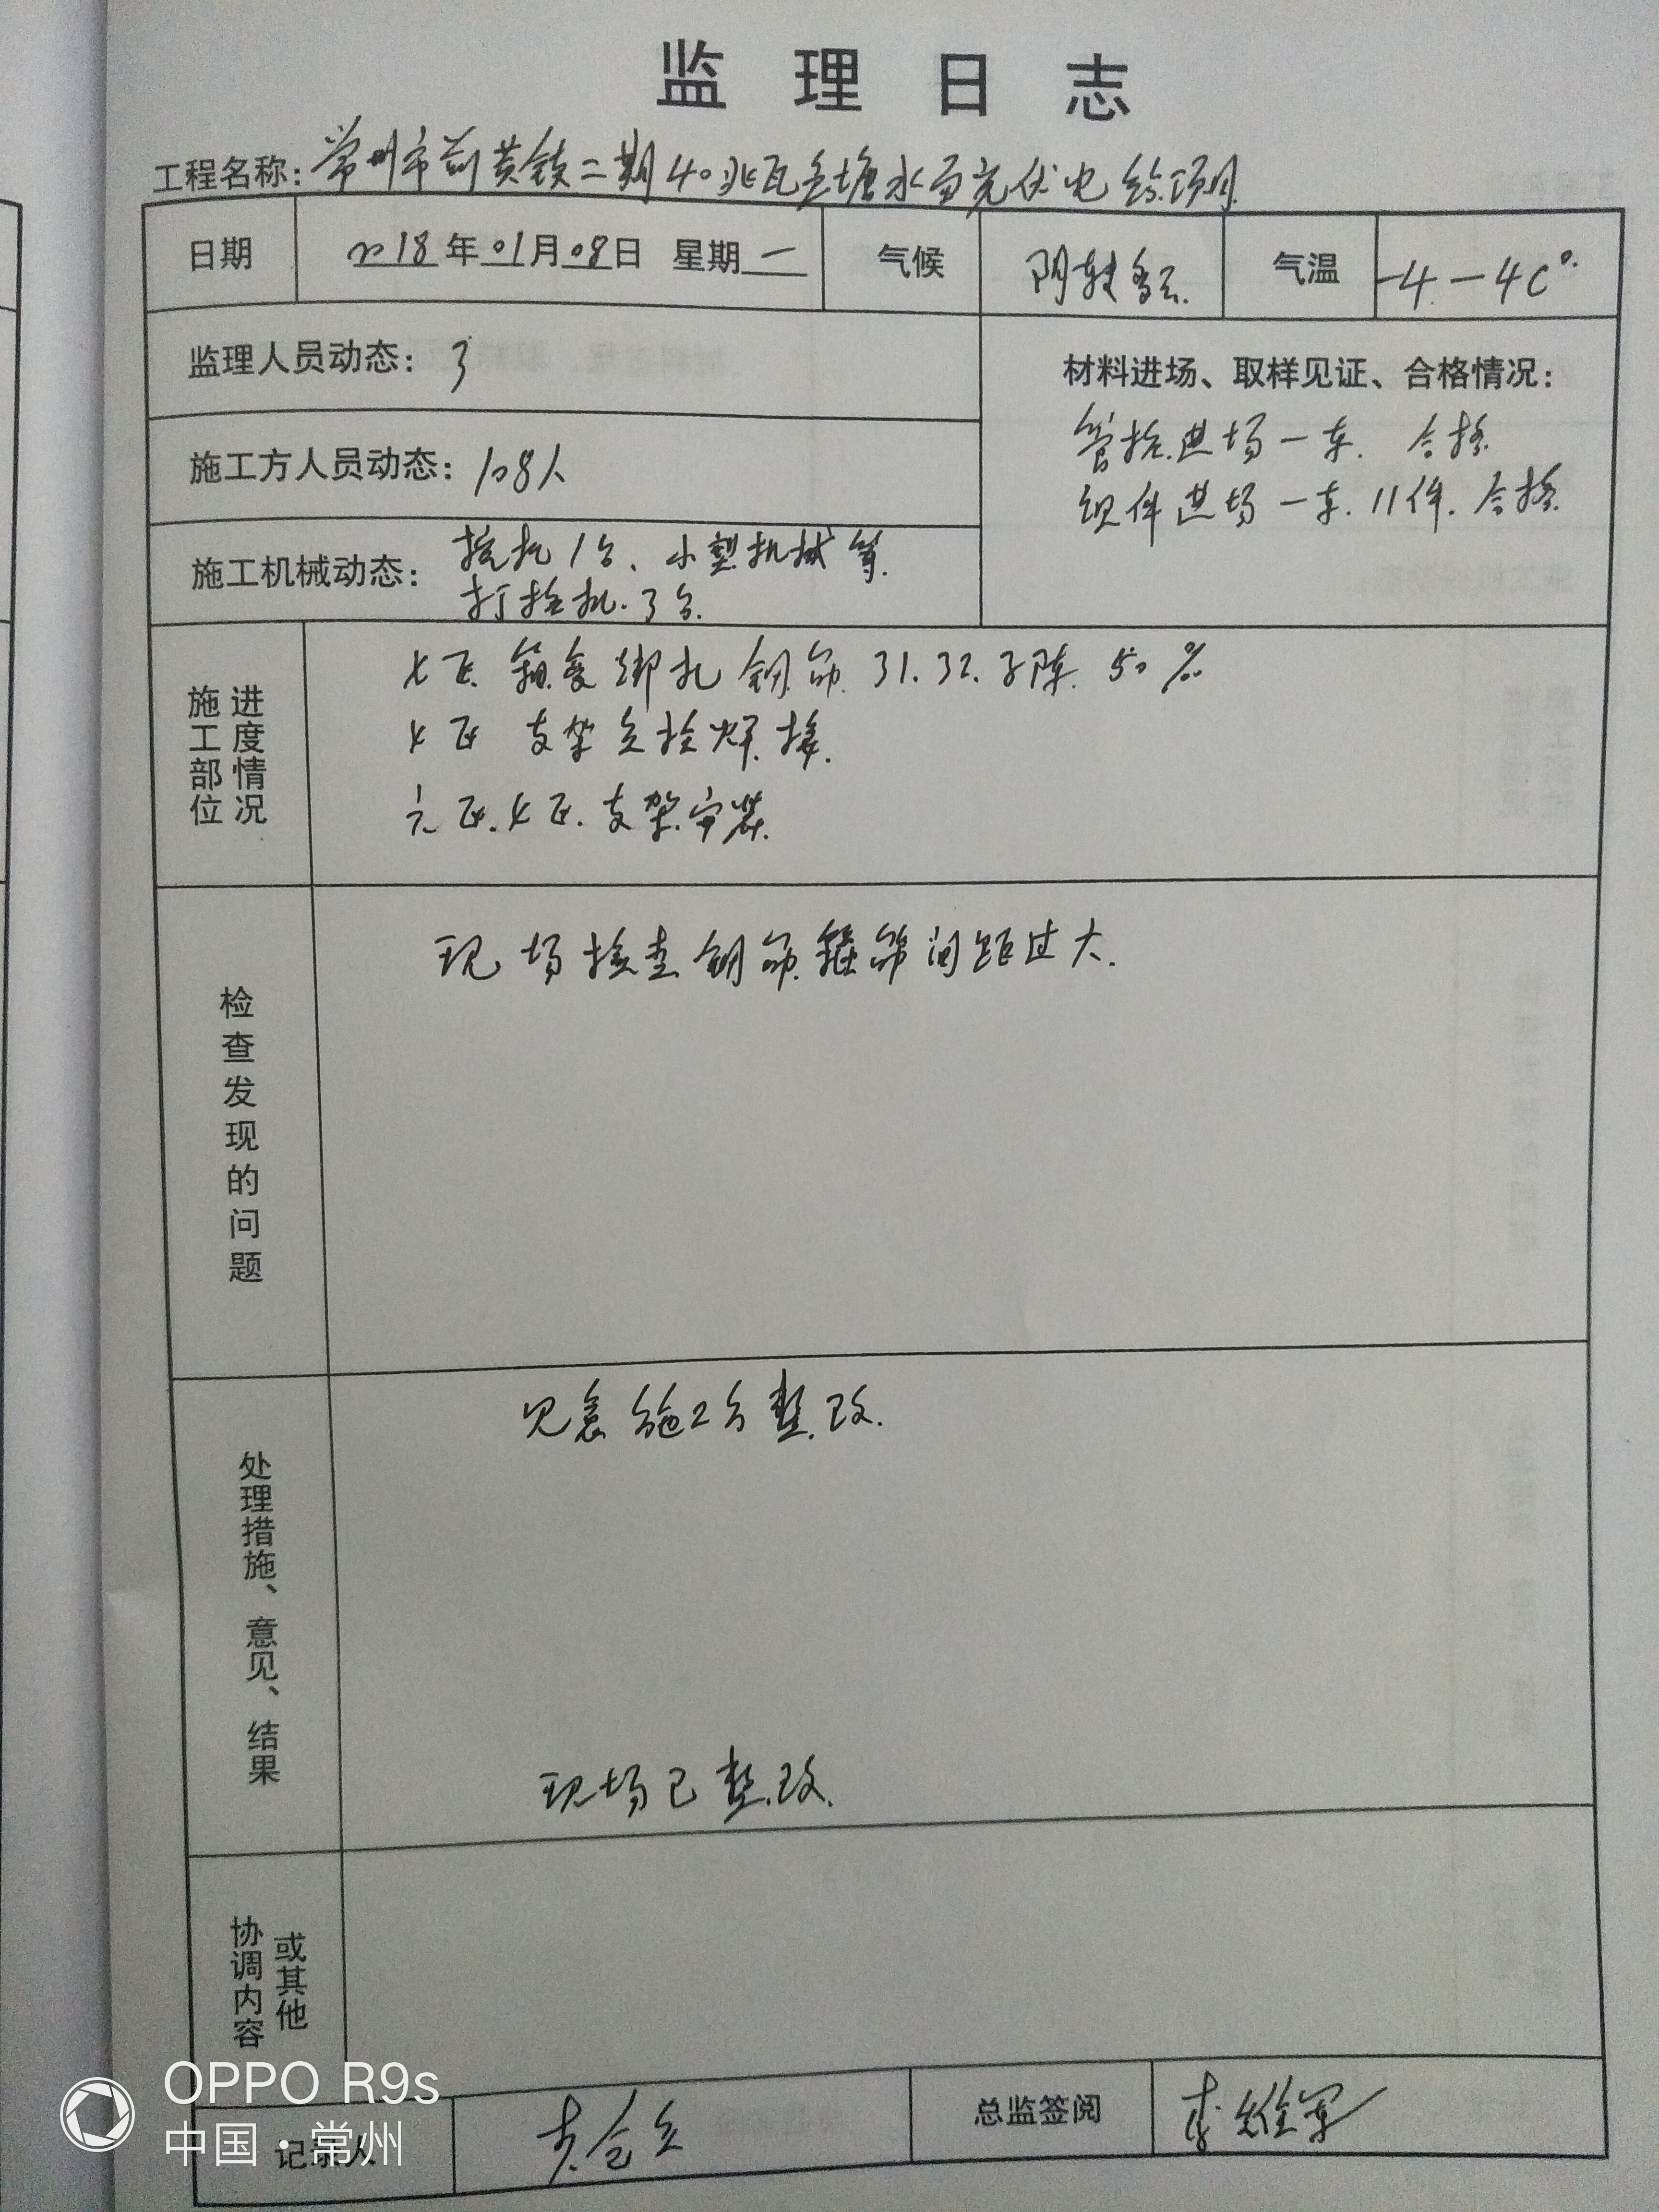 监理日志
工程名称：常州市前黄镇二期40兆瓦鱼塘水面光伏电站项目
日期 2018年01月08日 星期一 气候 阴转多云 气温 -4-4C°
监理人员动态：3
材料进场、取样见证、合格情况：
管桩进场一车. 合格
组件进场一车.11件.合格
施工方人员动态：108人
施工机械动态：挖机1台、小型机械等
打桩机.3台.
施工部位 进度情况
七区 箱变绑扎钢筋 31.32.子阵.50%
七区 支架立柱焊接.
六区.七区.支架安装.
检查发现的问题
现场检查钢筋箍筋间距过大.
处理措施、意见、结果
施工方整改.
现场已整改.
协调内容 或其他
记录人
总监签阅 李维军
OPPO R9s
中国·常州